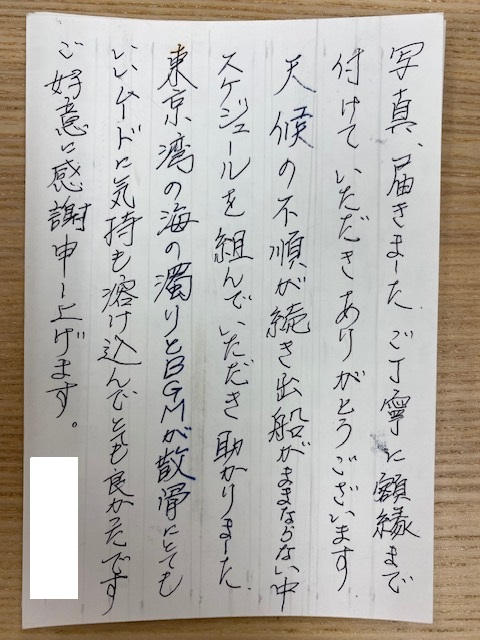 写真、届きました。ご丁寧に額縁まで
付けていただきありがとうございます
天候の不順が続き出船がままならない中
スケジュールを組んでいただき助かりました。
東京湾の海の濁りとBGMが散骨にとても
いいムードに気持も溶け込んでとても良かったです
ご好意に感謝申し上げます。